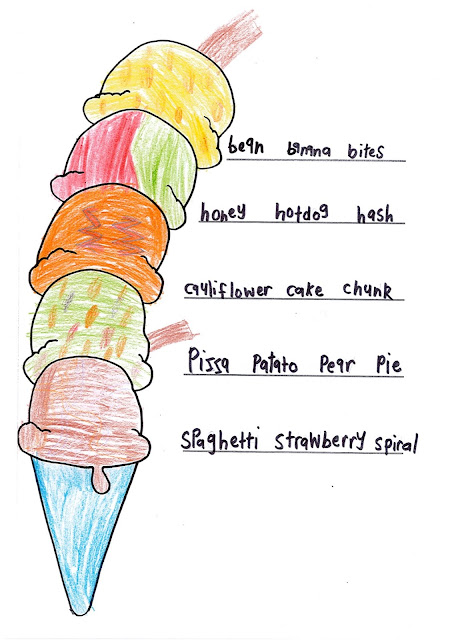 bean banana bites
honey hotdog hash
cauliflower cake chunk
Pissa Patato Pear Pie
Spaghetti strawberry spiral